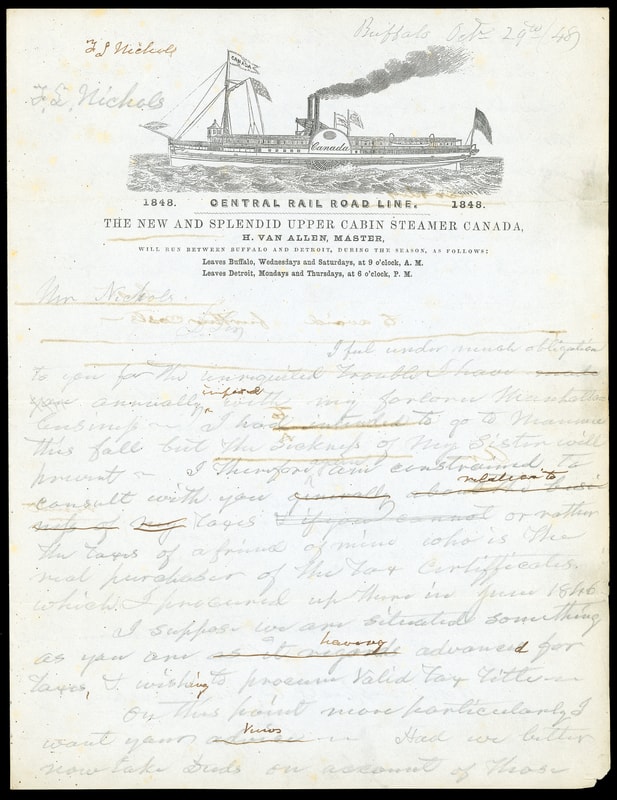 Buffalo Octr 29th/48
F S Nichols
F. S. Nichols
CANADA
Canada
1848. CENTRAL RAIL ROAD LINE. 1848.
THE NEW AND SPLENDID UPPER CABIN STEAMER CANADA,
H. VAN ALLEN, MASTER,
WILL RUN BETWEEN BUFFALO AND DETROIT, DURING THE SEASON, AS FOLLOWS:
Leaves Buffalo, Wednesdays and Saturdays, at 9 o'clock, A. M.
Leaves Detroit, Mondays and Thursdays, at 6 o'clock, P. M.
Mr Nichols
I feel under much obligation
to you for the unrequited trouble I have
annually imposed with my forlorn Manhattan
I had intended to go to Maumee
this fall but the sickness of my Sister will
prevent ~ I therefore am constrained to
consult with you relation to
my taxes if you cannot or rather
the taxes of a friend of mine who is the
real purchaser of the tax certificates
which I procured up there in June 1846
I suppose we are situated something
as you are as it regards having advanced for
taxes, & wishing to procure valid tax title
On this point more particularly I
want your advice views Had we better
now take deeds on account of those